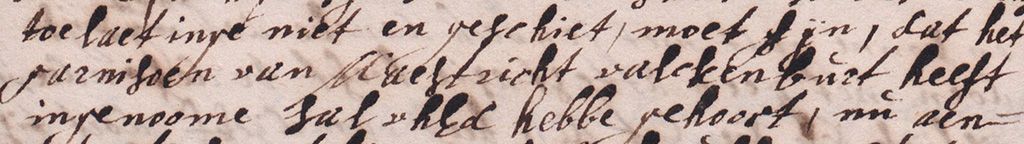 toelaetinge niet en geschiet, moet sijn, dat het
garnisoen van Maestricht valckenburt heeft
ingenoome sal vhEd hebbe gehoort, nu aen-